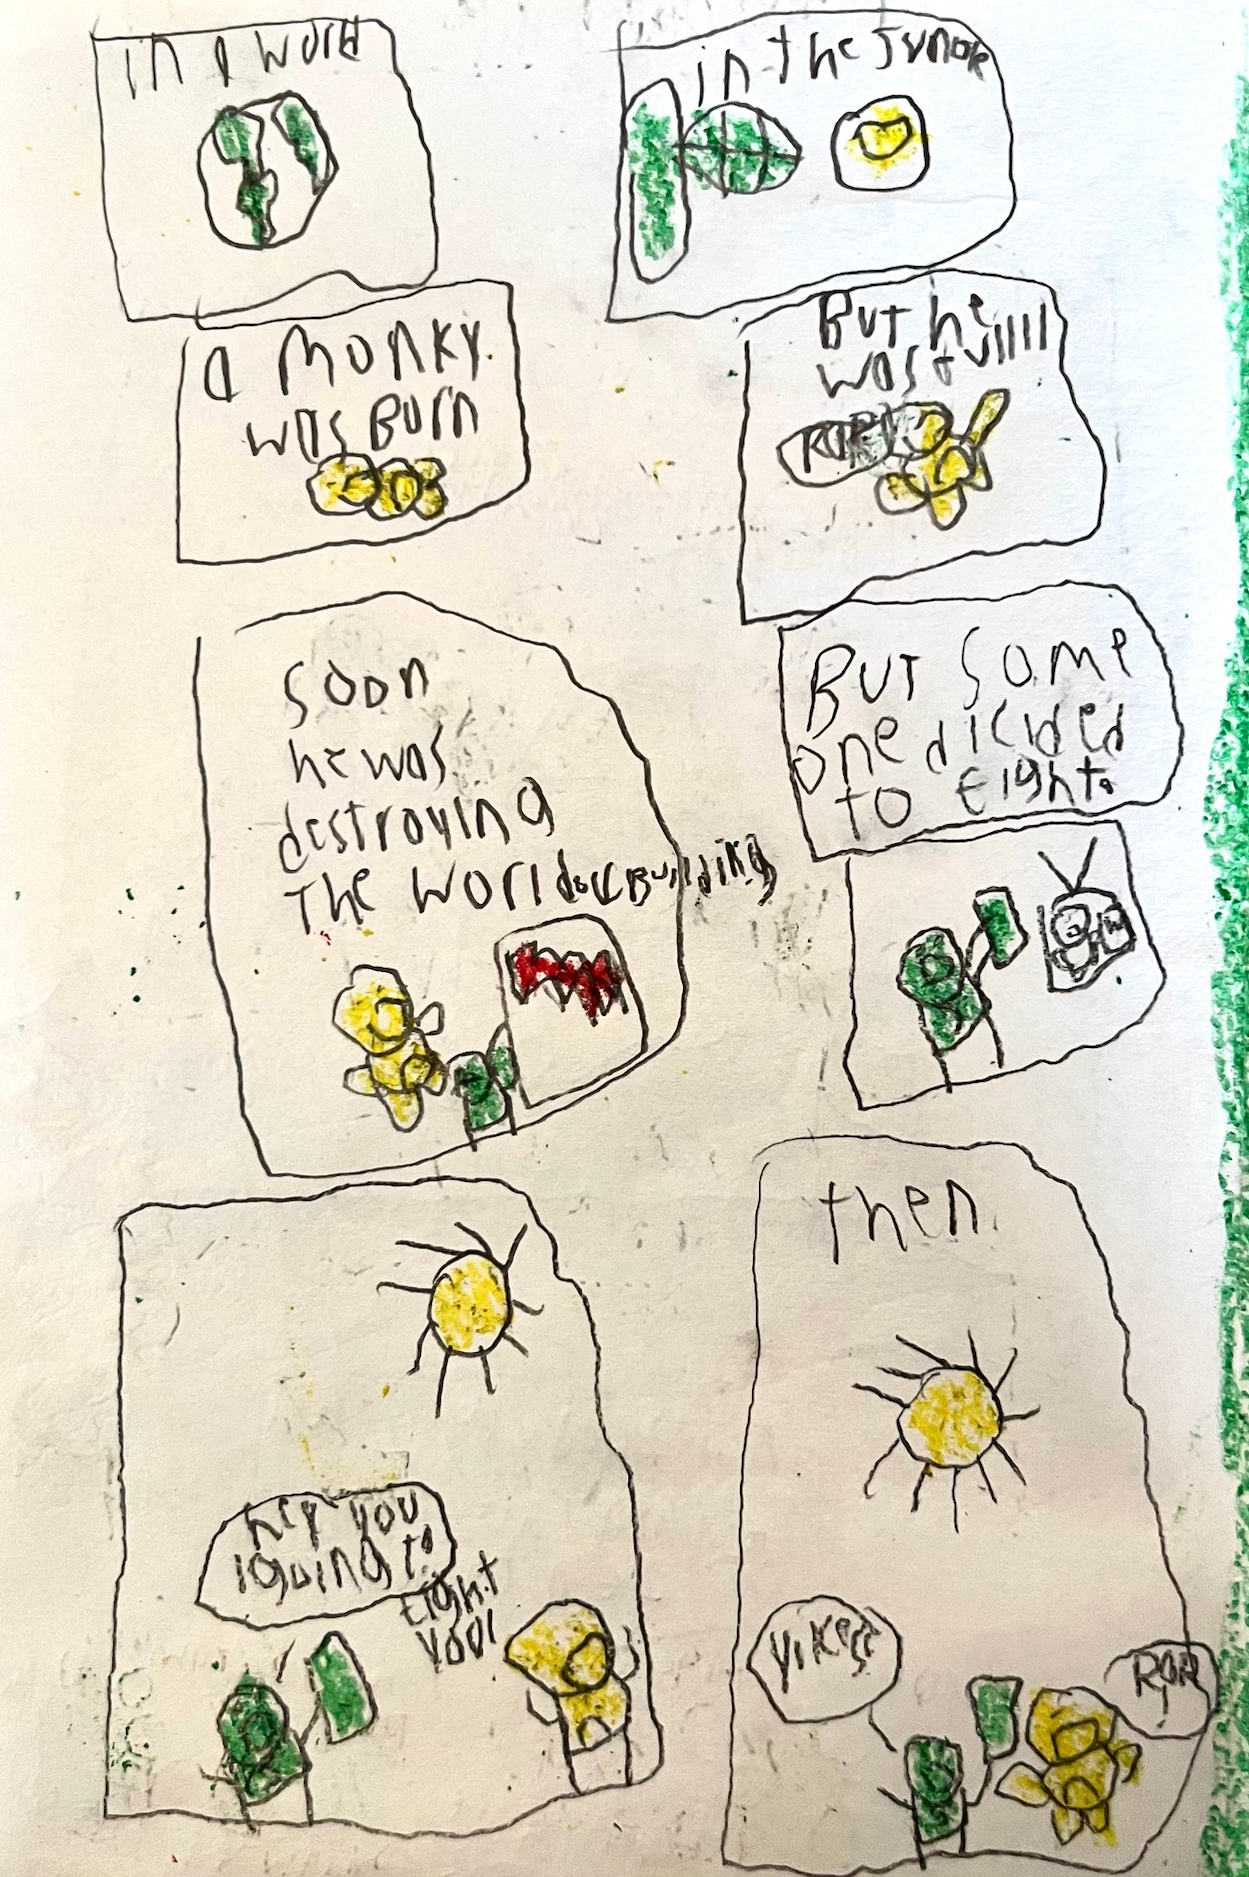 in a world
in the Jungle
a monky
was Born
But he
was Evilllll
ROR!
soon
he was
destroying
the world
Building
But some
one dicided
to Fight.
hey you
igoing to
Fight
you!
then
Yikes!
ROR
!